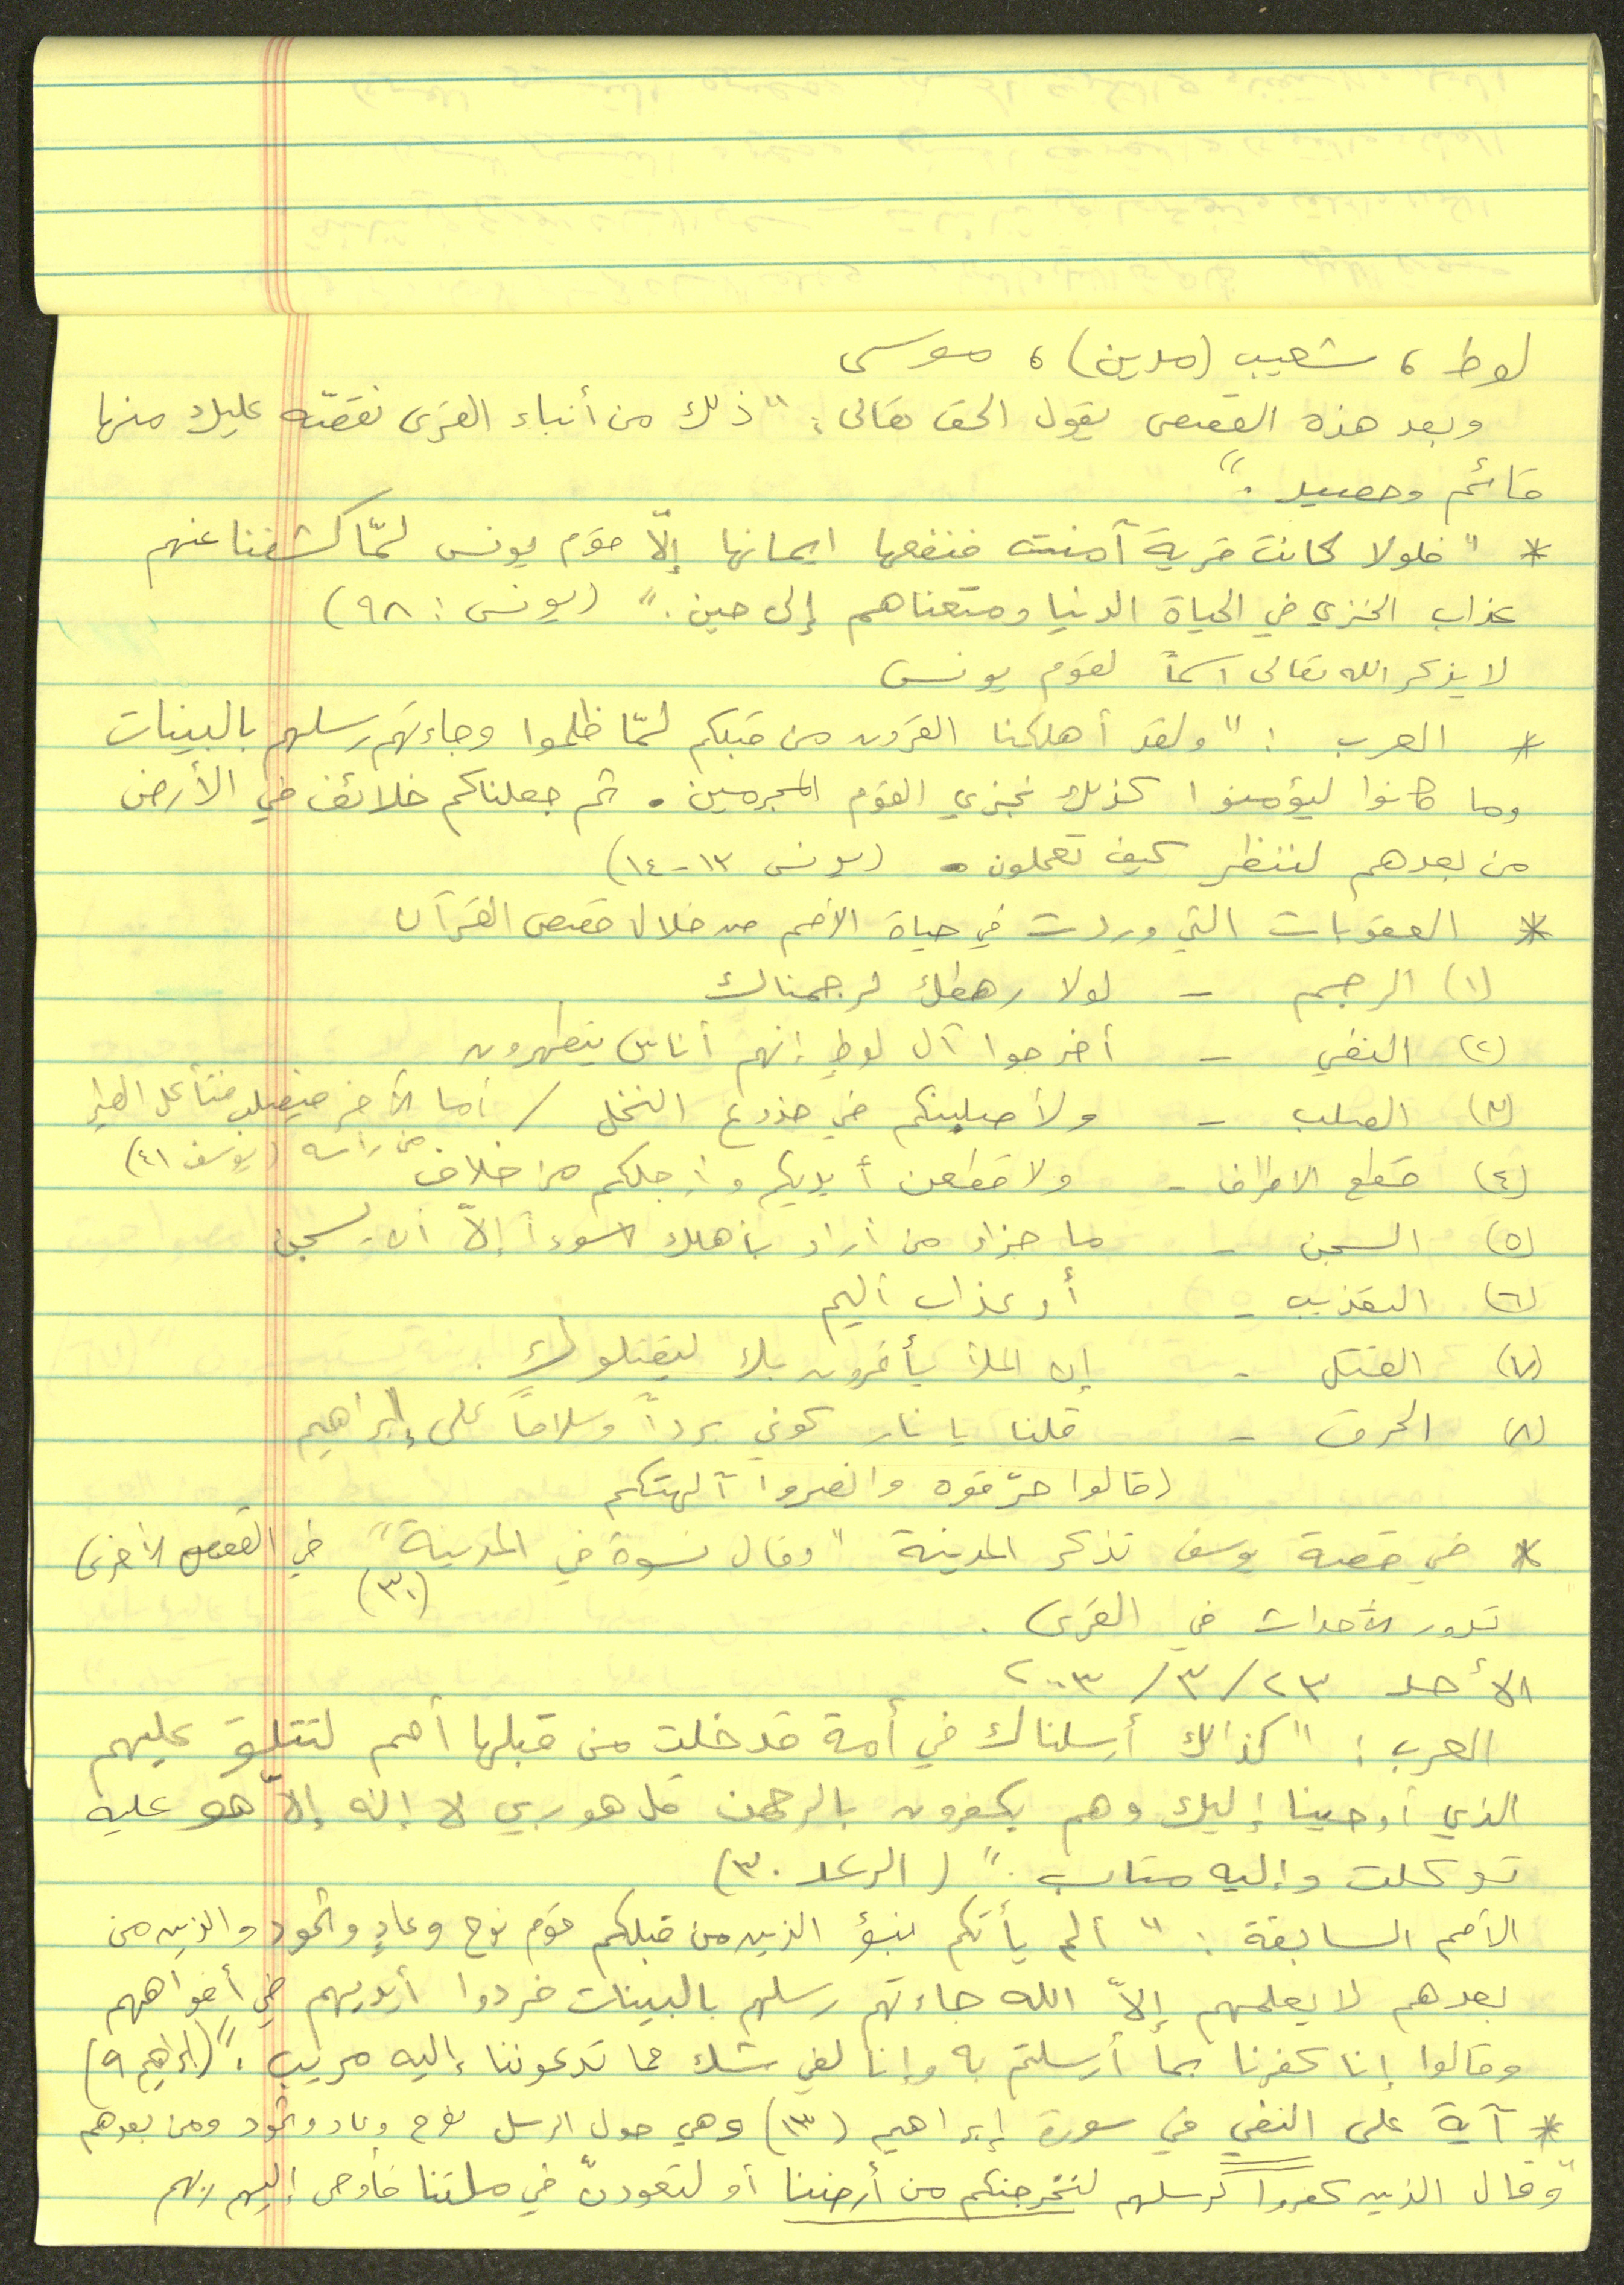 لوط ، شعيب (مدين) ، موسى
وبعد هذه القصص يقول الحق تعالى : "ذلك من أنباء القرى نقصّه عليك منها
قائم وحصيد ."
* "فلولا كانت قرية آمنت فنفعها ايمانها إلّا قوم يونس لمّا كشفنا عنهم
عذاب الخزي في الحياة الدنيا ومتعناهم إلى حين ." (يونس : ٩٨)
لا يذكر الله تعالى اسماً لقوم يونس
* العرب : "ولقد أهلكنا القرون من قبلكم لمّا ظلموا وجاءتهم رسلهم بالبينات
وما كانوا ليؤمنوا كذلك نجزي القوم المجرمين . ثم جعلناكم خلائف في الأرض
من بعدهم لننظر كيف تعملون . (يونس ١٣-١٤)
* العقوبات التي وردت في حياة الأمم من خلال قصص القرآن
(١) الرجم - لولا رهطك لرجمناك
(٢) النفي - أخرجوا آل لوط إنهم أناس يتطهرون
(٣) الصلب - ولأصلبنكم في جذوع النخل / أما الآخر فيصلب فتأكل الطير
من رأسه (يوسف ٤١)
(٤) قطع الاطراف - ولأقطعن أيديكم وأرجلكم من خلاف
(٥) السجن - ما جزاء من أراد بأهلك سوءاً إلّا أن يسجن
(٦) التعذيب - أو عذاب أليم
(٧) القتل - إن الملأ يأتمرون بك ليقتلوك .
(٨) الحرق - قلنا يا نار كوني برداً وسلاماً على إبراهيم
(قالوا حرّقوه وانصروا آلهتكم
* في قصة يوسف تذكر المدينة "وقال نسوة في المدينة" في القصص الأخرى
(٣٠)
تدور الأحداث في القرى .
الأحد ٢٣/٣/٢٠٠٣
العرب : "كذلك أرسلناك في أمة قد خلت من قبلها أمم لتتلو عليهم
الذي أوحينا إليك وهم يكفرون بالرحمن قل هو ربي لا إله إلّا هو عليه
توكلت وإليه متاب ." (الرعد ٣٠)
الأمم السابقة : "ألم يأتكم نبؤ الذين من قبلكم قوم نوح وعادٍ وثمود والذين من
بعدهم لا يعلمهم إلّا الله جاءتهم رسلهم بالبينات فردوا أيديهم في أفواههم
وقالوا إنا كفرنا بما أرسلتم به وإنا لفي شك مما تدعوننا إليه مريب ." (إبراهيم ٩)
* آية على النفي في سورة إبراهيم (١٣) وهي حول الرسل نوح وعاد وثمود ومن بعدهم
"وقال الذين كفروا لرسلهم لنخرجنكم من أرضنا أو لتعودنّ في ملتنا فأوحى إليهم ربهم